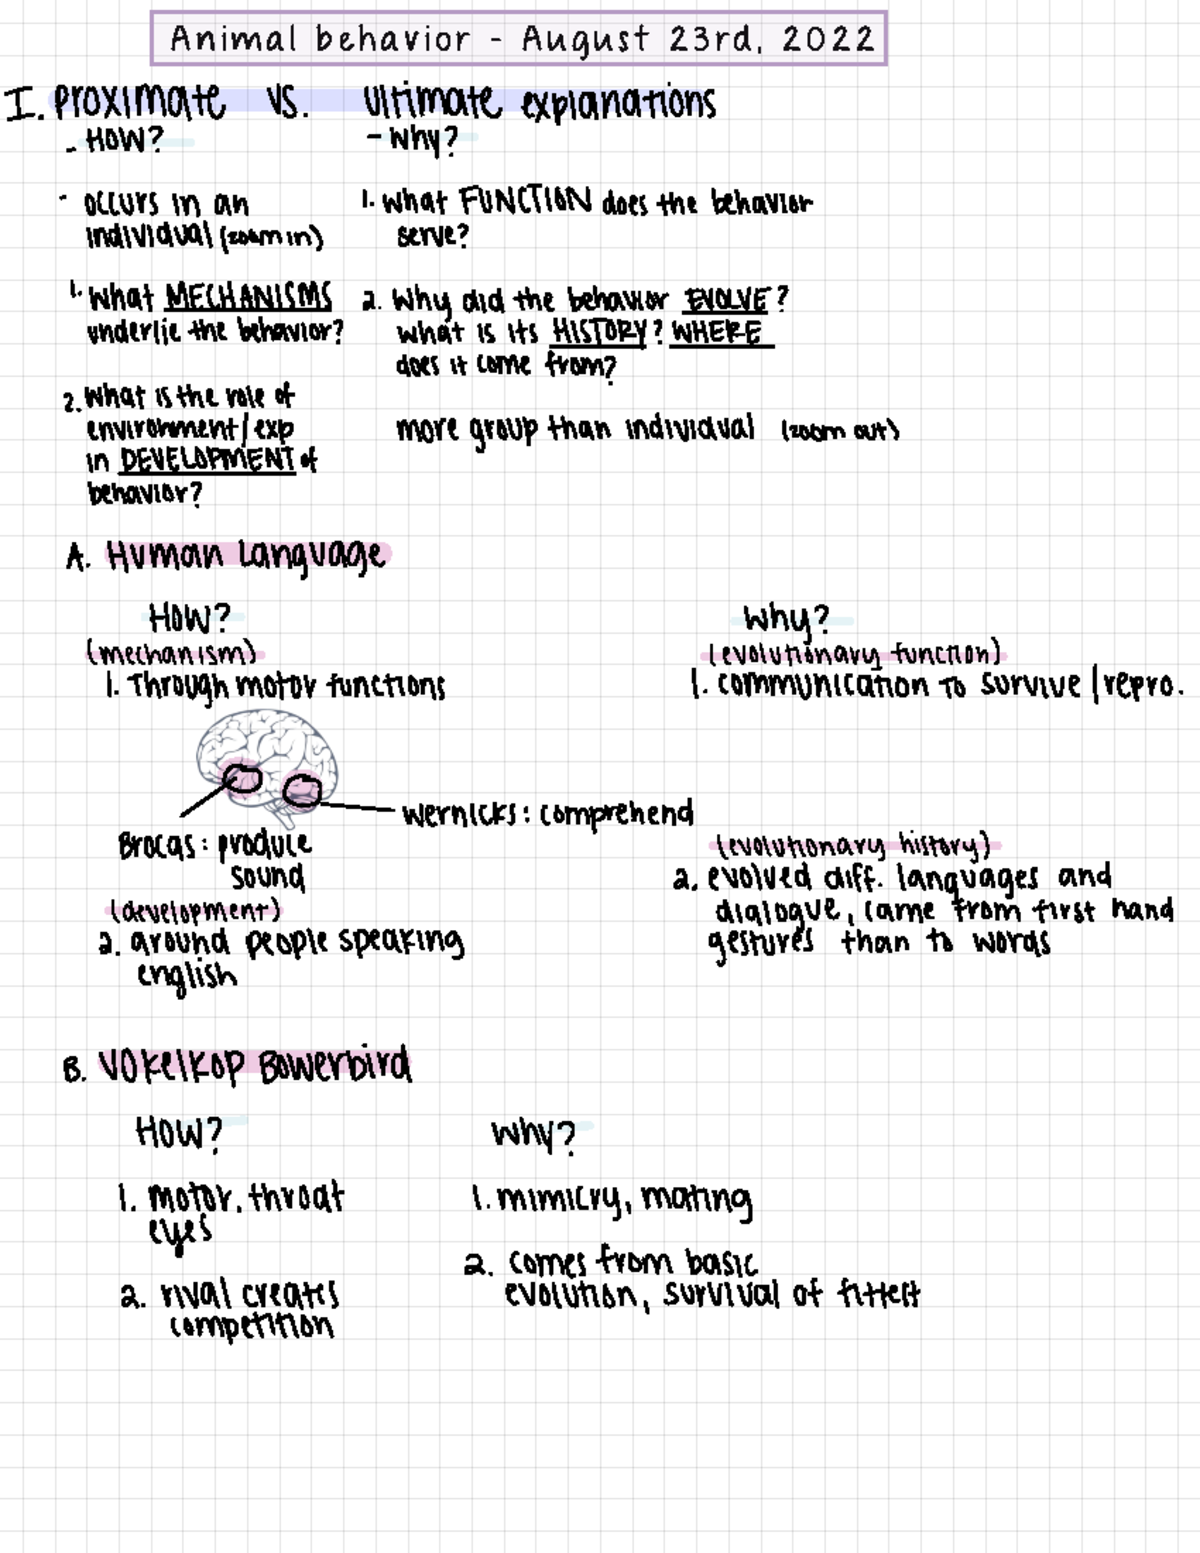 Animal behavior - August 23rd, 2022
I. Proximate vs. Ultimate explanations
- HOW?
- Why?
- occurs in an
individual (zoom in)
1. What MECHANISMS
underlie the behavior?
2. What is the role of
environment/exp
in DEVELOPMENT of
behavior?
1. What FUNCTION does the behavior
serve?
2. Why did the behavior EVOLVE?
what is its HISTORY? WHERE
does it come from?
more group than individual (zoom out)
A. Human Language
HOW?
(mechanism)
1. Through motor functions
Brocas: produce
sound
Wernicks: comprehend
(development)
2. around people speaking
english
Why?
(evolutionary function)
1. communication to survive/repro.
(evolutionary history)
2. evolved diff. languages and
dialogue, came from first hand
gestures than to words
B. Vokelkop Bowerbird
HOW?
1. motor, throat
eyes
2. rival creates
competition
Why?
1. mimicry, mating
2. comes from basic
evolution, survival of fittest